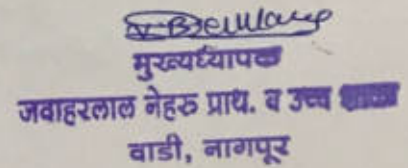 मुख्यध्यापक
जवाहरलाल नेहरू प्राथ. व उच्च
वाडी, नागपूर